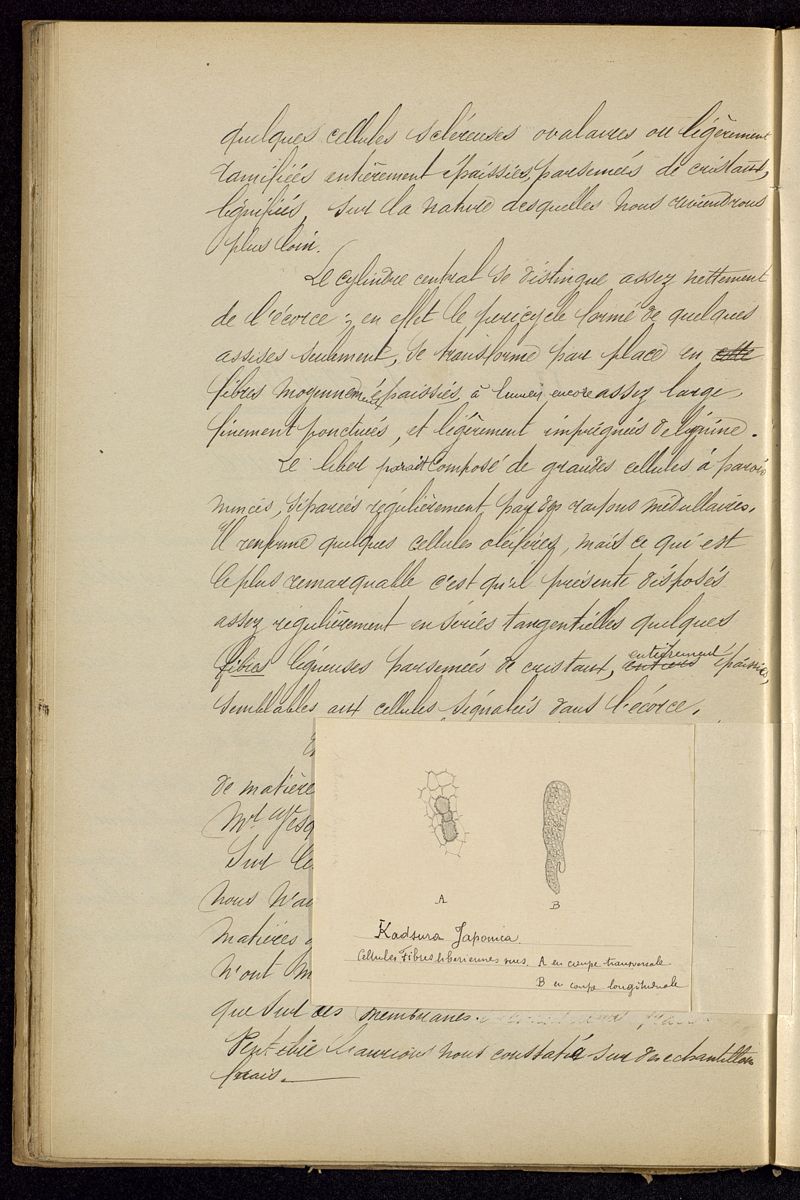 quelques cellules scléreuses ovalaires ou légèrement
ramifiées entièrement épaissies, parsemées de cristaux,
lignifiées, sur la nature desquelles nous reviendrons
plus loin.
Le cylindre central se distingue assez nettement
de l'écorce ; en effet le péricycle formé de quelques
assises seulement, se transforme par place en cette
fibres moyennement épaissies, à lumen encore assez large,
finement ponctuées, et légèrement imprégnées de lignine.
Le liber parait composé de grandes cellules à parois
minces, séparées régulièrement par des rayons médullaires.
Il renferme quelques cellules oléifères, mais ce qui est
le plus remarquable c'est qu'il présente disposés
assez régulièrement en séries tangentielles quelques
fibres ligneuses parsemées de cristaux, entièrement épaissies,
semblables aux cellules signalées dans l'écorce.
de matière
Mr Vesq
Sur le
nous n'a
matières
n'ont m
que sur des membranes.
Peut-être l'aurions nous constaté sur des echantillons
frais.
A
B
Kadsura Japonica.
Cellules Fibres liberiennes vues. A en coupe transversale
B en coupe longitudinale